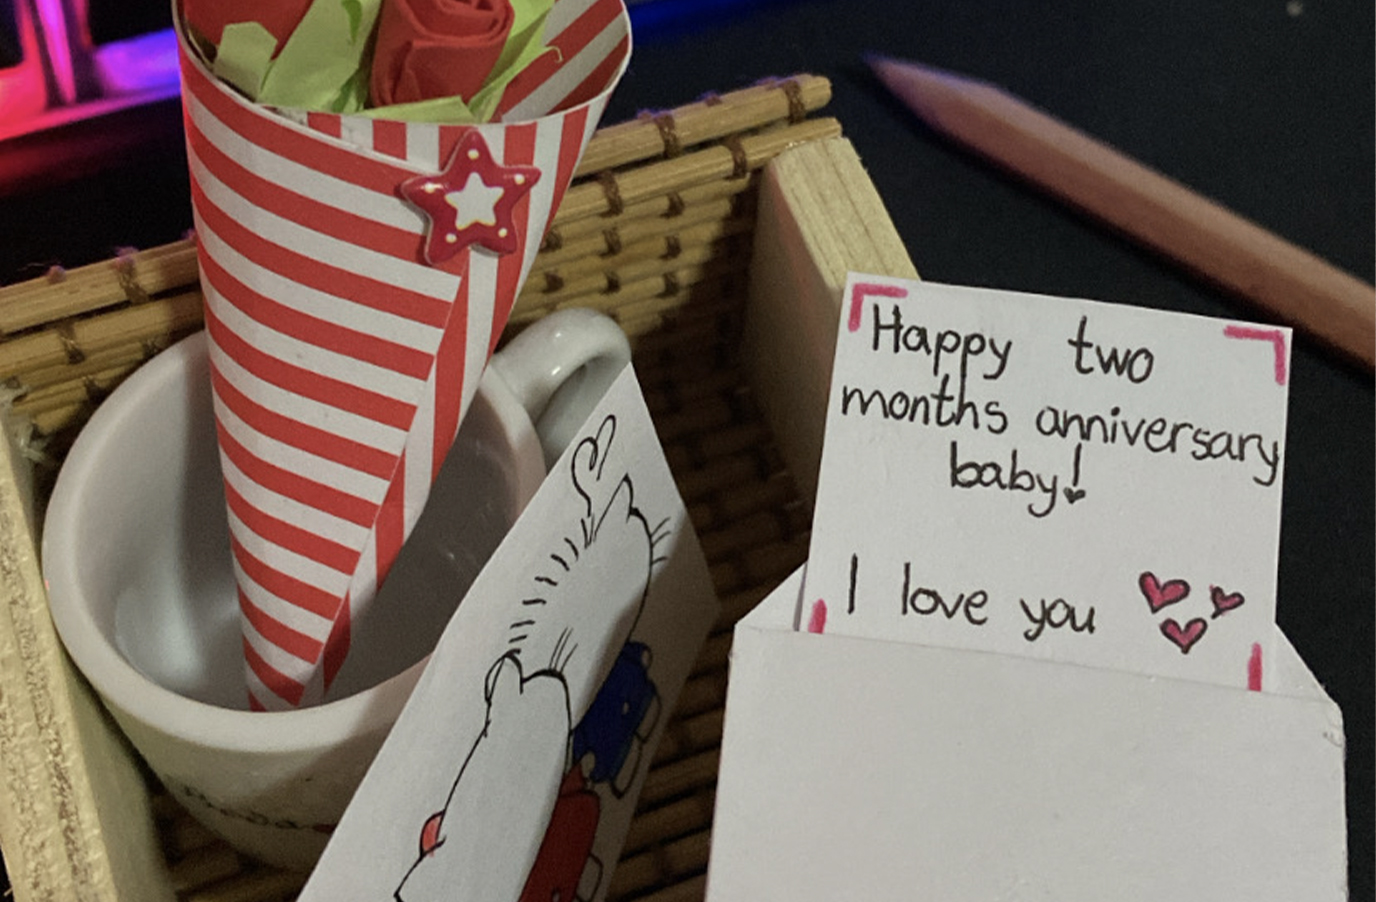 Happy two
months anniversary
baby!
I love you